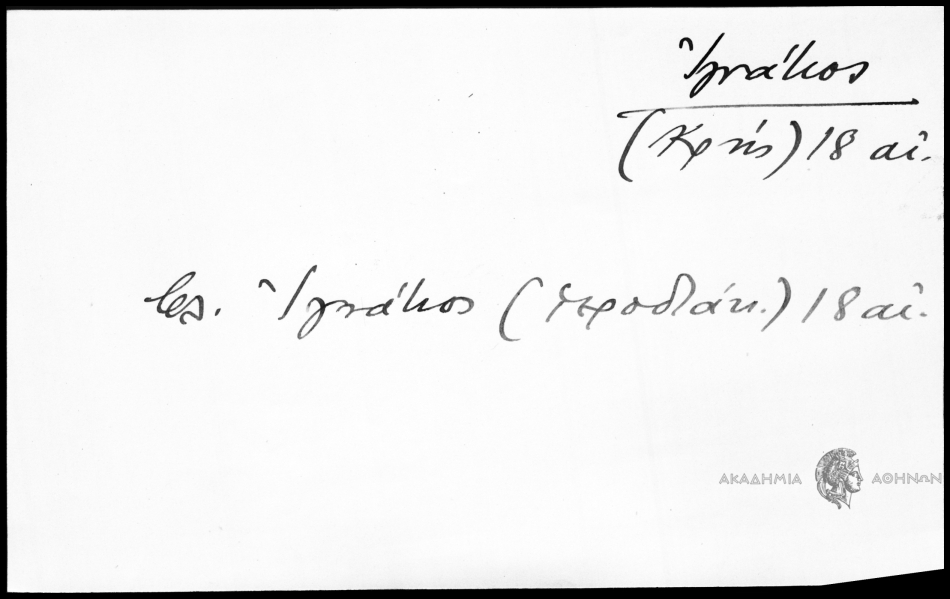 Ἰγνάτιος
(Κρής) 18 αἰ.
βλ. Ἰγνάτιος (ἱεροδιάκ.) 18 αἰ.
ΑΚΑΔΗΜΙΑ ΑΘΗΝΩΝ